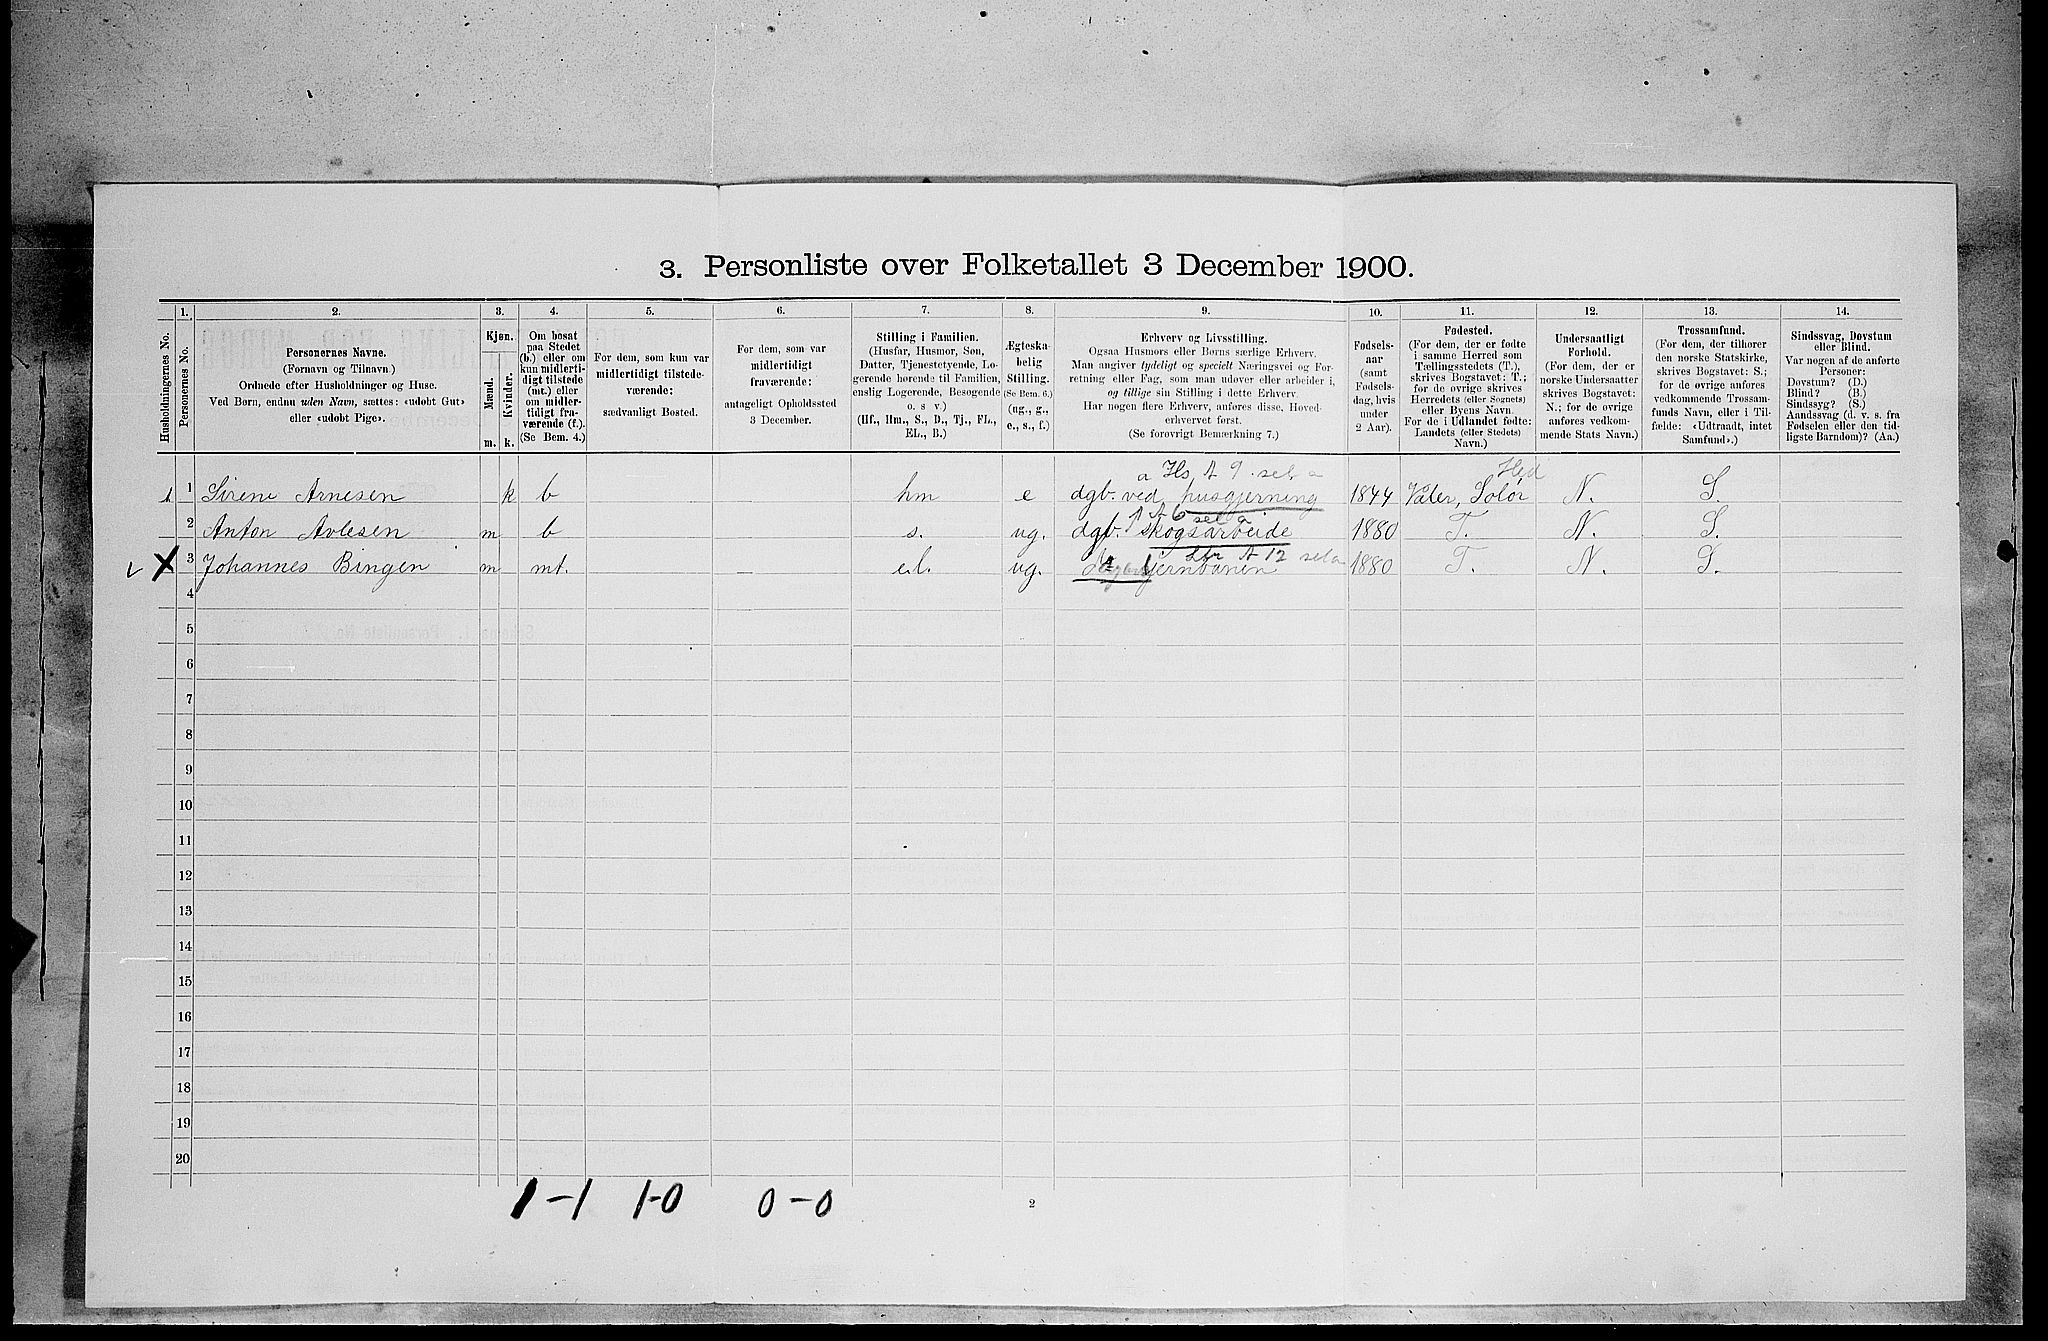 3. Personliste over Folketallet 3 December 1900.
Husholdningernes No.
1.
Personernes No.
2.
Personernes Navne.
(Fornavn og Tilnavn.)
Ordnede efter Husholdninger og Huse.
Ved Børn, endnu uden Navn, sættes: «udøbt Gut»
eller «udøbt Pige».
3.
Kjøn.
Mænd.
Kvinder.
m. k.
4.
Om bosat
paa Stedet
(b.) eller om
kun midlerti-
digt tilstede
(mt.) eller
om midler-
tidigt fra-
værende (f.).
(Se Bem. 4.)
5.
For dem, som kun var
midlertidigt tilstede-
værende:
sædvanligt Bosted.
6.
For dem, som var
midlertidigt
fraværende:
antageligt Opholdssted
3 December.
7.
Stilling i Familien.
(Husfar, Husmor, Søn,
Datter, Tjenestetyende, Lo-
gerende hørende til Familien,
enslig Logerende, Besøgende
o. s v.)
(Hf., Hm., S., D., Tj., FL.,
EL., B.)
8.
Ægteska-
belig
Stilling.
(Se Bem. 6.)
(ug., g.,
e., s., f.)
9.
Erhverv og Livsstilling.
Ogsaa Husmors eller Børns særlige Erhverv.
Man angiver tydeligt og specielt Næringsvei og For-
retning eller Fag, som man udøver eller arbeider i,
og tillige sin Stilling i dette Erhverv.
Har nogen flere Erhverv, anføres disse, Hoved-
erhvervet først.
(Se forøvrigt Bemærkning 7.)
10.
Fødsels-
aar
(samt
Fødsels-
dag, hvis
under
2 Aar).
11.
Fødested.
(For dem, der er fødte
i samme Herred som
Tællingsstedets (T.),
skrives Bogstavet: T.;
for de øvrige skrives
Herredets (eller Sognets)
eller Byens Navn.
For de i Udlandet fødte:
Landets (eller Stedets)
Navn.)
12.
Undersaatligt
Forhold.
(For dem, der er
norske Undersaatter
skrives Bogstavet:
N.; for de øvrige
anføres vedkom-
mende Stats Navn.)
13.
Trossamfund.
(For dem, der tilhører
den norske Statskirke,
skrives Bogstavet: S.;
for de øvrige anføres
vedkommende Trossam-
funds Navn, eller i Til-
fælde: «Udtraadt, intet
Samfund».)
14.
Sindssvag, Døvstum
eller Blind.
Var nogen af de anførte
Personer:
Døvstum? (D.)
Blind? (B.)
Sindssyg? (S.)
Aandssvag (d. v. s. fra
Fødselen eller den tid-
ligste Barndom)? (Aa.)
a Hs. A 9 sel a Hed
1 1 Sirene Arnesen k b hm e dgb. ved husgjerning 1844 Våler, Solør N. S.
A 6 sel a
2 Anton Avlesen m b s. ug. dgb. skogsarbeide 1880 T. N. S.
A 12 sel a
X 3 Johannes Bingen m mt. e.l. ug. jernbanen 1880 T. N. S.
4
5
6
7
8
9
10
11
12
13
14
15
16
17
18
19
20
1-1 1-0 0-0
2